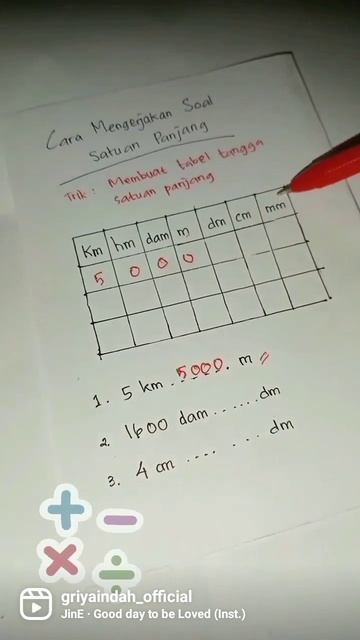 Cara Mengerjakan Soal
Satuan Panjang
Trik : Membuat tabel tangga
satuan panjang
Km hm dam m dm cm mm
5 0 0 0
1. 5 km .. 5000. m
2. 1600 dam ...... dm
3. 4 cm .... ... dm
griyaindah_official
JinE · Good day to be Loved (Inst.)